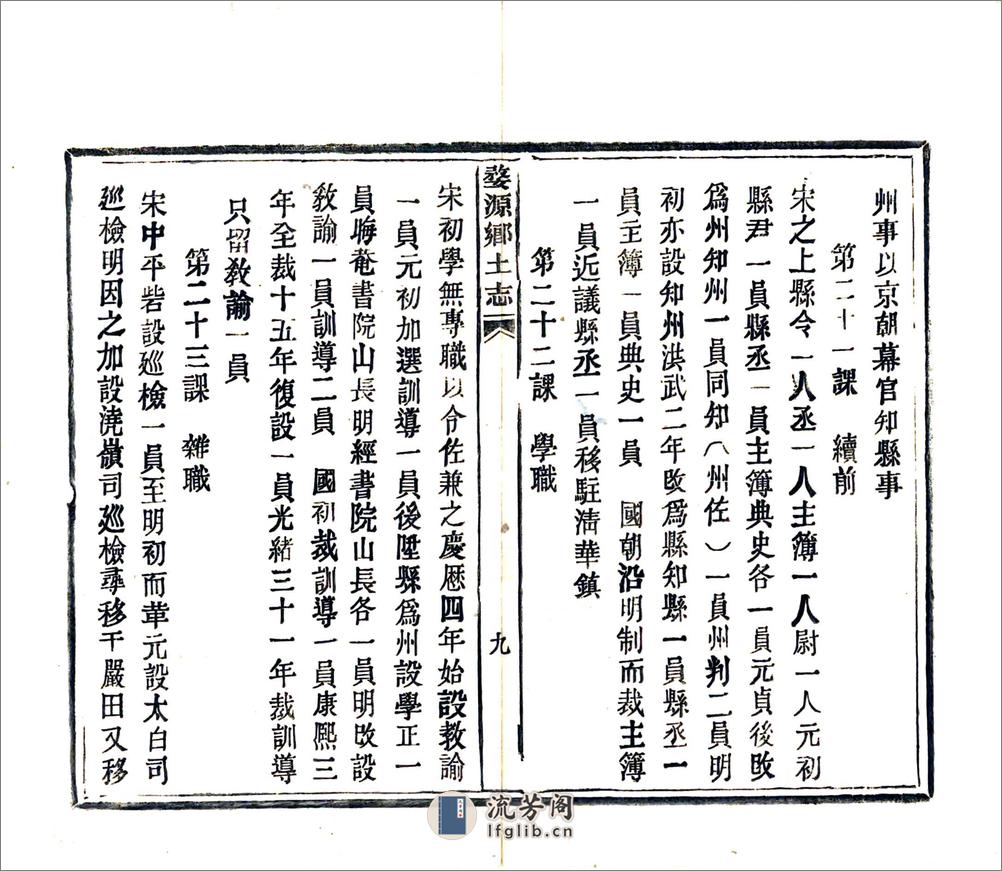 州事以京朝幕官知縣事
第二十一課　續前
宋之上縣令一人丞一人主簿一人尉一人元初
縣尹一員縣丞一員主簿典史各一員元貞後改
爲州知州一員同知（州佐）一員州判二員明
初亦設知州洪武二年改爲縣知縣一員縣丞一
員主簿一員典史一員　國朝沿明制而裁主簿
一員近議縣丞一員移駐清華鎮
第二十二課　學職
婺源鄉土志
九
宋初學無專職以令佐兼之慶厯四年始設教諭
一員元初加選訓導一員後陞縣爲州設學正一
員晦菴書院山長明經書院山長各一員明改設
教諭一員訓導二員　國初裁訓導一員康熙三
年全裁十五年復設一員光緒三十一年裁訓導
只留教諭一員
第二十三課　雜職
宋中平砦設廵檢一員至明初而革元設太白司
廵檢明因之加設澆嶺司廵檢尋移于嚴田又移
流芳阁
lfglib.cn